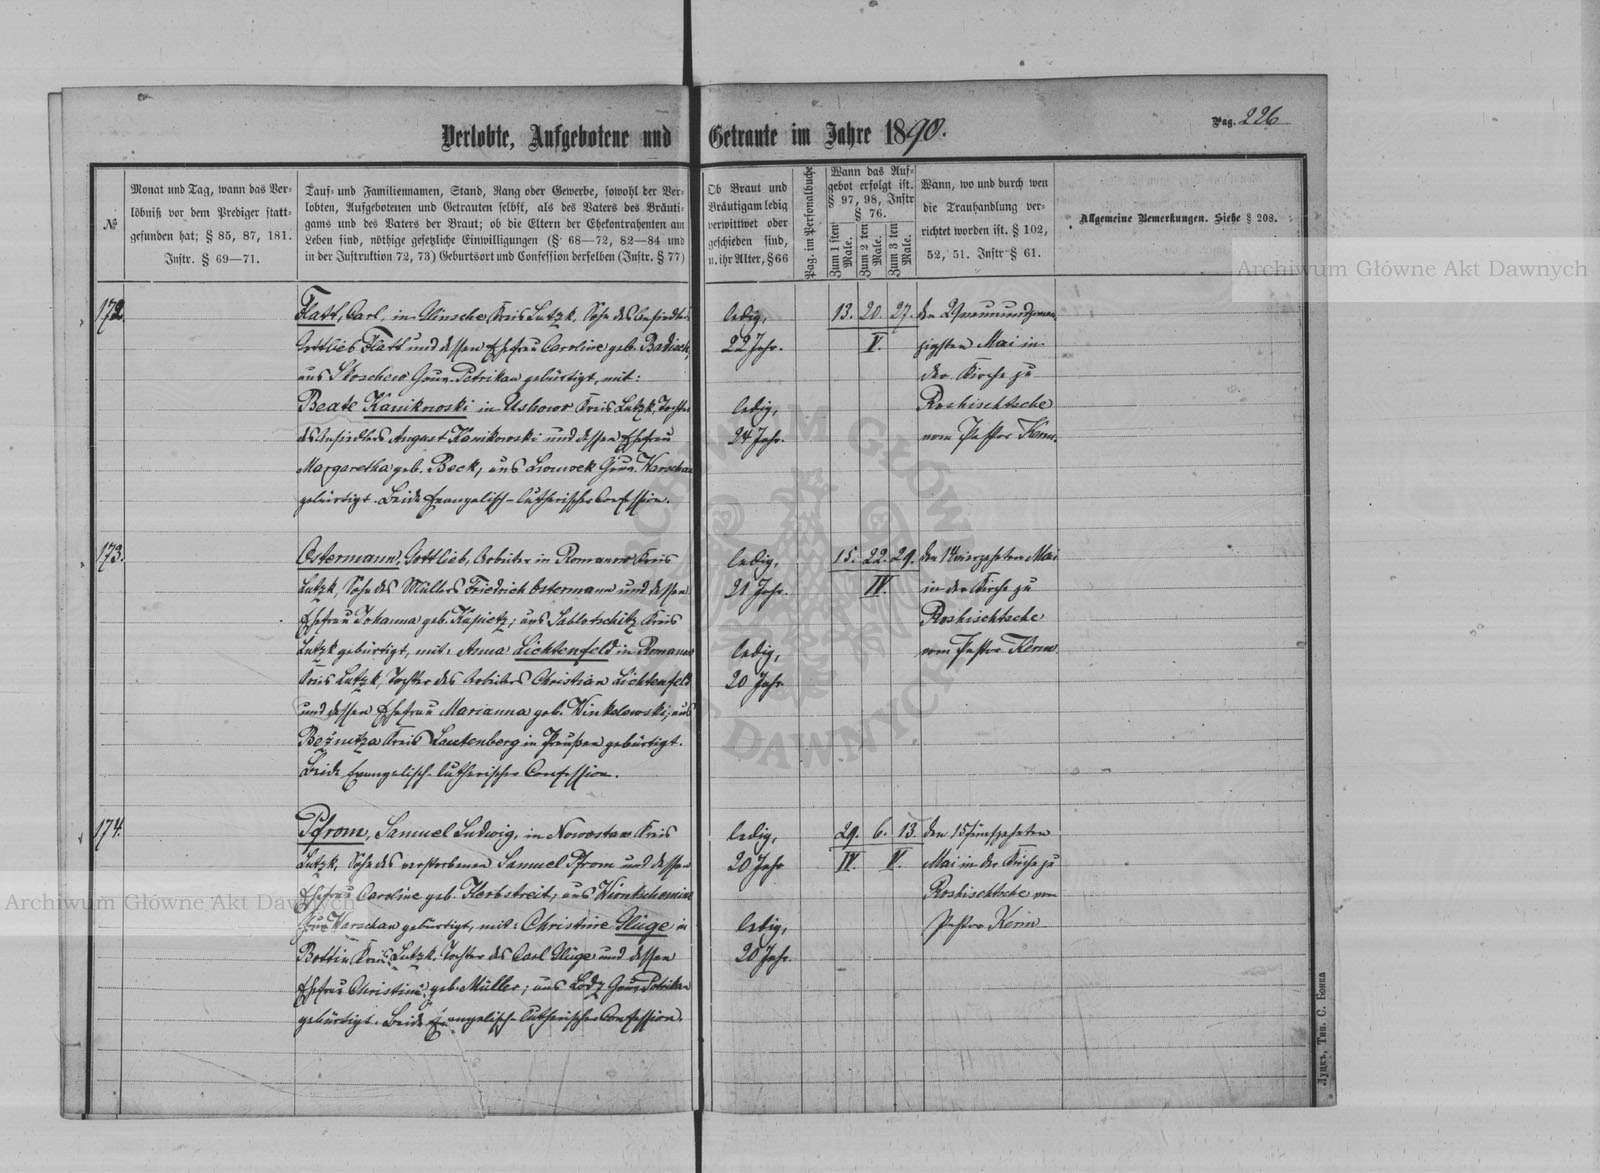 Verlobte, Aufgebotene und Getraute im Jahre 1890.
Pag. 226
№
Monat und Tag, wann das Ver-
löbniß vor dem Prediger statt-
gefunden hat; § 85, 87, 181.
Instr. § 69—71.
Tauf- und Familiennamen, Stand, Rang oder Gewerbe, sowohl der Ver-
lobten, Aufgebotenen und Getrauten selbst, als des Vaters des Bräuti-
gams und des Vaters der Braut; ob die Eltern der Ehekontrahenten am
Leben sind, nöthige gesetzliche Einwilligungen (§ 68—72, 82—84 und
in der Justruktion 72, 73) Geburtsort und Confession derselben (Instr. § 77)
Ob Braut und
Bräutigam ledig
verwittwet oder
geschieden sind,
u. ihr Alter, § 66
Pag. im Personalbuche
Wann das Auf-
gebot erfolgt ist.
§ 97, 98, Instr
§ 76.
Zum 1 sten Male.
Zum 2 ten Male.
Zum 3 ten Male.
Wann, wo und durch wen
die Trauhandlung ver-
richtet worden ist. § 102,
52, 51. Instr § 61.
Allgemeine Bemerkungen. Siehe § 208.
172
Flatt, Carl, in Klinsche Kreis Lutzk, Sohn des Ansiedlers
Gottlieb Flatt und dessen Ehefrau Caroline geb. Badisch,
aus Gouv. Petrikau gebürtigt, mit:
Beate Kanikowski in Ushowo Kreis Lutzk, Tochter
des Ansiedlers August Kanikowski und dessen Ehefrau
Margaretha geb. Beck; aus Gouv. Warschau
gebürtigt. Beide Evangelisch-lutherischer Confession.
ledig,
22 Jahr.
ledig,
24 Jahr.
13. 20. 27.
V.
den 29 neunundzwan-
zigsten Mai in
der Kirche zu
Roshischtsche
vom Pastor Kerm.
173.
Ostermann, Gottlieb, Arbeiter in Romanow Kreis
Lutzk, Sohn des Müllers Friedrich Ostermann und dessen
Ehefrau Johanna geb. Kupietz; aus Sablotschitz Kreis
Lutzk gebürtigt, mit: Anna Lichtenfeld in Romanow
Kreis Lutzk, Tochter des Arbeiters Christian Lichtenfeld
und dessen Ehefrau Marianna geb. Winkelowski; aus
Kreis Lautenberg in Preußen gebürtigt.
Beide Evangelisch-lutherischer Confession.
ledig,
21 Jahr.
ledig,
20 Jahr
15. 22. 29.
IV.
den 14 vierzehnten Mai
in der Kirche zu
Roshischtsche
vom Pastor Kerm
174.
Pfrom, Samuel Ludwig, in Nowostaw Kreis
Lutzk, Sohn des verstorbenen Samuel Pfrom und dessen
Ehefrau Caroline geb. Herbstreit; aus
Gouv. Warschau gebürtigt, mit: Christine Kluge in
Bottin Kreis Lutzk, Tochter des Carl Kluge und dessen
Ehefrau Christine geb. Müller; aus Lodz Gouv. Petrikau
gebürtigt. Beide Evangelisch-lutherischer Confession.
ledig,
20 Jahr
ledig,
20 Jahr.
29. 6. 13.
IV. V.
den 15 fünfzehnten
Mai in der Kirche zu
Roshischtsche vom
Pastor Kerm
Луцкъ, Тип. С. Бонка
Archiwum Główne Akt Dawnych
Archiwum Główne Akt Dawnych
ARCHIWUM GŁÓWNE AKT DAWNYCH